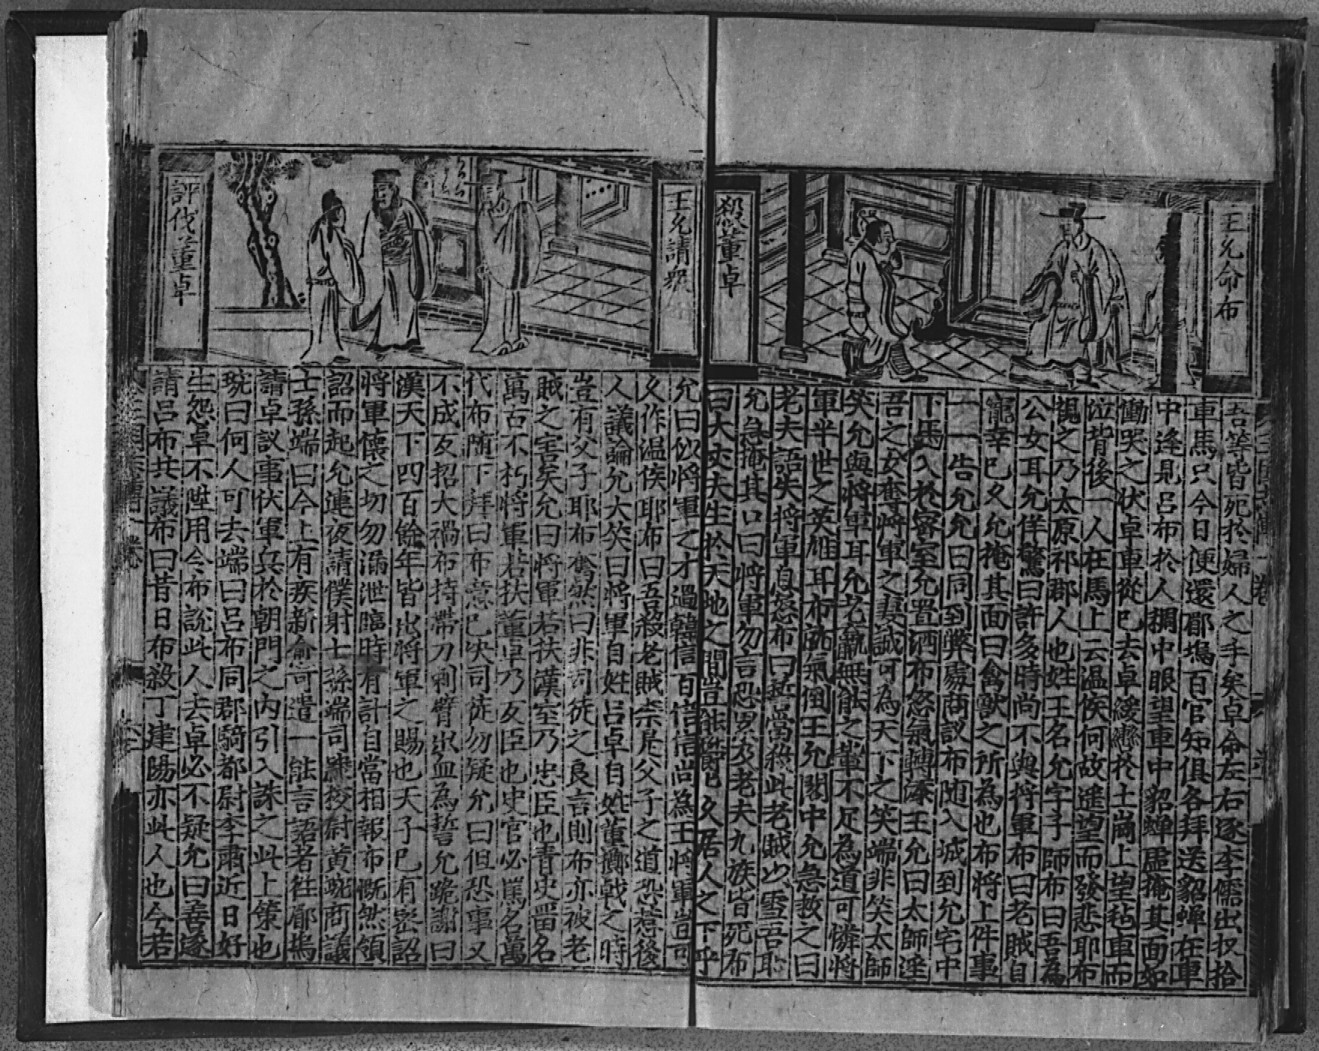 王允命布
殺董卓
吾等皆死於婦人之手矣卓命左右逐李儒出收拾
車馬只今日便還郿塢百官知俱各拜送貂蟬在車
中逢見呂布於人稠中眼望車中貂蟬虛掩其面如
慟哭之狀卓車從已去卓緩轡於土崗上望毡車而
泣背後一人在馬上云温侯何故遥望而發悲耶布
視之乃太原祁郡人也姓王名允字子師布曰吾為
公女耳允佯驚曰許多時尚不與將軍布曰老賊自
寵幸已久允掩其面曰禽獸之所為也布將上件事
一一告允允曰同到弊處商議布随入城到允宅中
下馬入於密室允置酒布忿氣轉深王允曰太師淫
吾之女奪將軍之妻誠可為天下之笑端非笑太師
笑允與將軍耳允老無能之輩不足為道可憐將
軍半世之英雄耳布氣倒王允閣中允急救之曰
老夫語失將軍息怒布曰誓當殺此老賊以雪吾恥
允急掩其口曰將軍勿言恐累及老夫九族皆死布
曰大丈夫生於天地之間豈能欝欝久居人之下乎
王允請衆
評伐董卓
允曰似將軍之才過韓信百倍信尚為王將軍豈可
久作温侯耶布曰吾殺老賊柰是父子之道恐惹後
人議論允大笑曰將軍自姓呂卓自姓董擲戟之時
豈有父子耶布奮然曰非司徒之良言則布亦被老
賊之害矣允曰將軍若扶漢室乃忠臣也青史畱名
萬古不朽將軍若扶董卓乃反臣也史官必罵名萬
代布随下拜曰布意已决司徒勿疑允曰但恐事又
不成反招大禍布持帶刀刺臂出血為誓允跪謝曰
漢天下四百餘年皆出將軍之賜也天子已有密詔
將軍懷之切勿漏泄臨時有計自當相報布慨然領
詔而起允連夜請僕射士孫端司隸校尉黄琬商議
士孫端曰今上有疾新愈可遣一能言語者徃郿塢
請卓議事伏軍兵於朝門之內引入誅之此上策也
琬曰何人可去端曰呂布同郡騎都尉李肅近日好
生怨卓不陞用令布說此人去卓必不疑允曰善遂
請呂布共議布曰昔日布殺丁建陽亦此人也今若